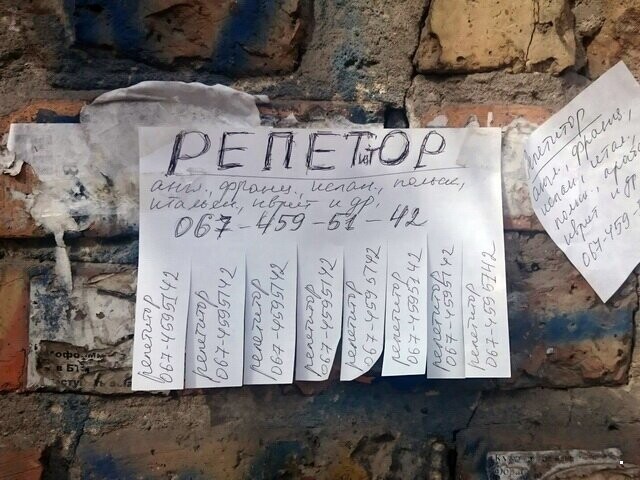 РЕПЕТИТОР
англ., франц., испан., польск,
итальян, иврит и др,
067-459-51-42
репетитор
067-4595142
репетитор
067-4595142
репетитор
067-4595142
репетитор
067-4595142
репетитор
067-4595142
репетитор
067-4595142
репетитор
067-4595142
репетитор
067-4595142
репетитор
англ., франц,
испан, итал,
польск, араб
иврит и др
067-459